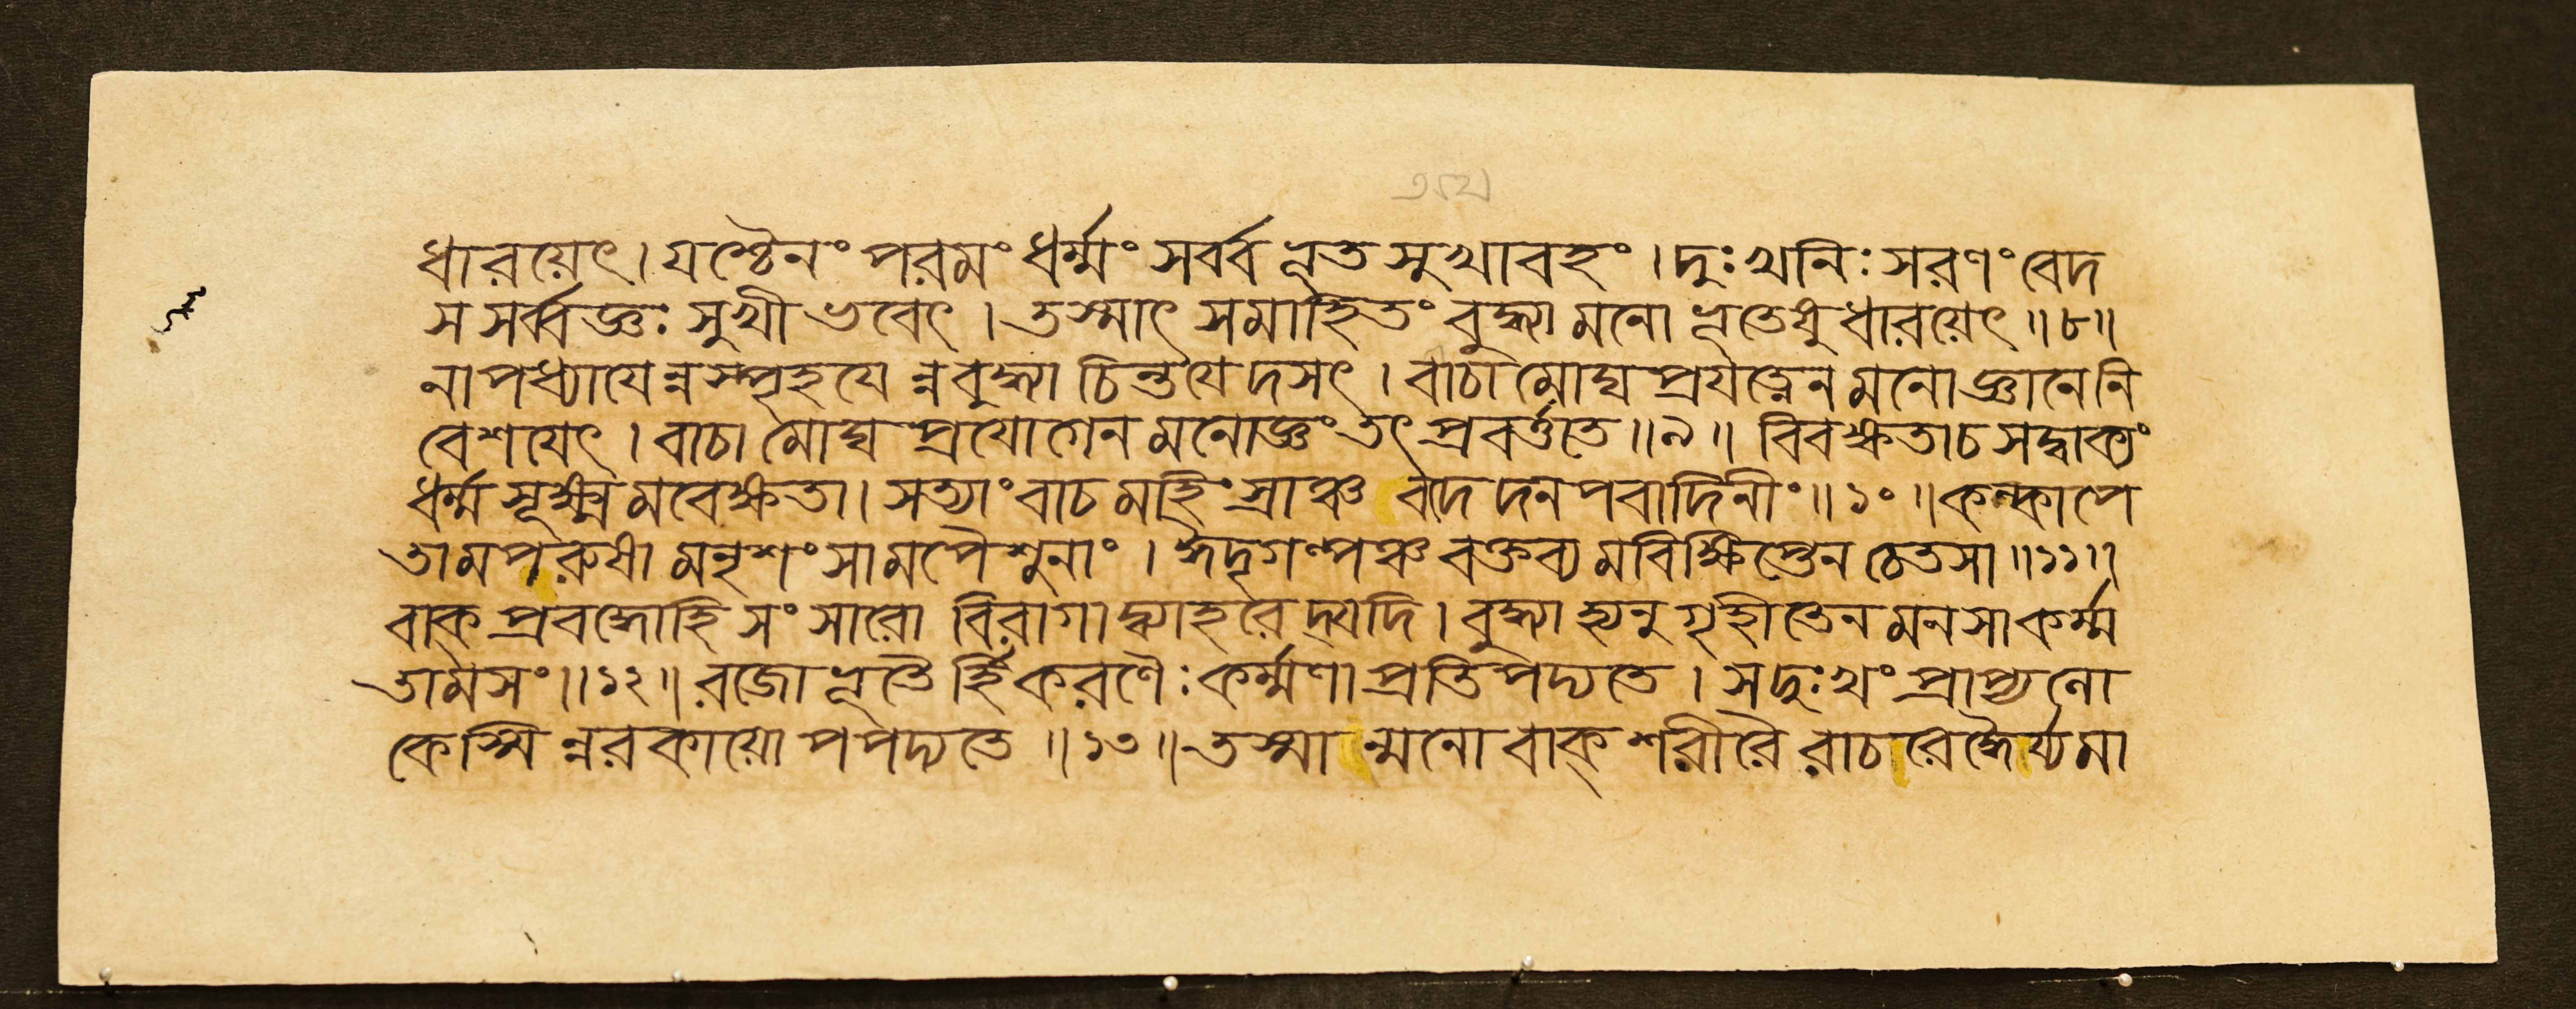 ধারয়েৎ। যশ্চৈনং পরমং ধর্ম্মং সর্বব ভূত সুখাবহং । দুঃখনিঃসরণং বেদ
স সর্ব্বজ্ঞঃ সুখী ভবেৎ । তস্মাৎ সমাহিতং বুদ্ধ্যা মনো ভূতেষু ধারয়েৎ ॥৮॥
নাপধ্যাযেন্ন স্পৃহযে ন্ন বুদ্ধ্যা চিন্তযেদসৎ । বাচা মোঘ প্রযত্নেন মনো জ্ঞানে নি
বেশযেৎ । বাচা মোঘ প্রযোগেন মনোজ্ঞং তৎ প্রবর্ত্ততে ॥৯॥ বিবক্ষতা চ সদ্বাক্যং
ধর্ম্ম সূক্ষ্ম মবেক্ষতা । সত্যাং বাচ মহিংস্রাঞ্চ বদে দনপবাদিনীং ॥১০॥ কল্কাপে
তামপরুষা মনৃশংসামপৈশুনাং । ঈদৃগল্পঞ্চ বক্তব্য মবিক্ষিপ্তেন চেতসা ॥১১॥
বাক প্রবদ্ধোহি সংসারো বিরাগাদ্ব্যাহরে দ্যদি । বুদ্ধ্যা হ্যনু গৃহীতেন মনসা কর্ম্ম
তামসং ॥১২॥ রজো ভূতৈ র্হি করণৈঃ কর্ম্মণা প্রতিপদ্যতে । স দুঃখং প্রাপ্য লো
কেস্মি ন্নরকায়োপপদ্যতে ॥১৩॥ তস্মা ন্মনো বাক্ শরীরৈ রাচরে দ্ধৈর্য্যমা